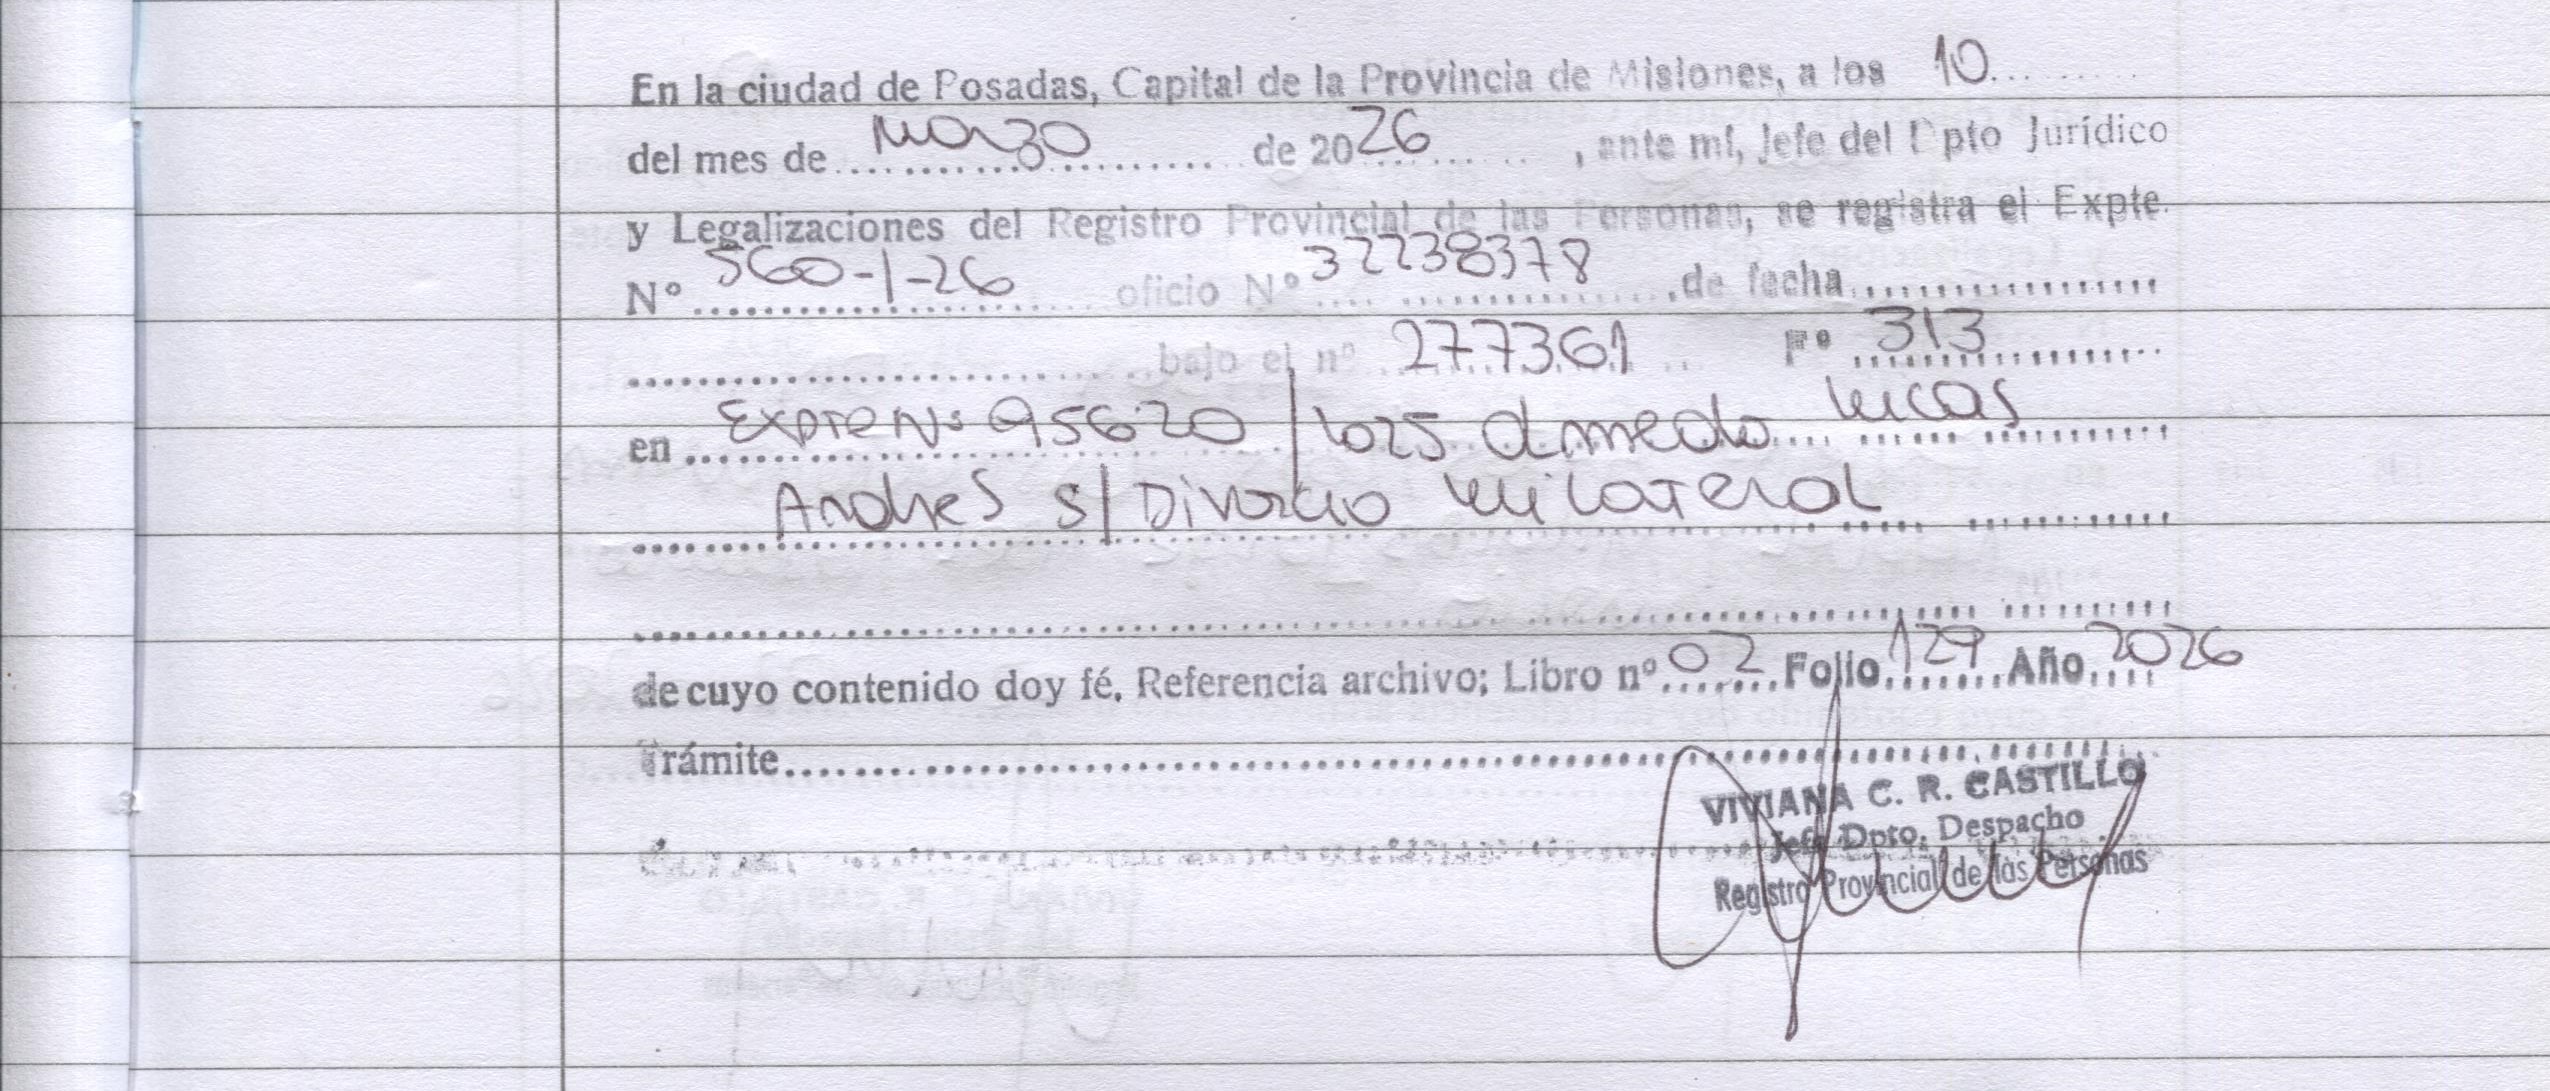 En la ciudad de Posadas, Capital de la Provincia de Misiones, a los 10
del mes de Marzo de 2026, ante mí, Jefe del Dpto Jurídico
y Legalizaciones del Registro Provincial de las Personas, se registra el Expte.
Nº 560-1-26 oficio Nº 32238378, de fecha
bajo el nº 277361 Fº 313
en Expte Nº 95620/2025 Olmedo Lucas
Andres s/ Divorcio Unilateral
de cuyo contenido doy fé. Referencia archivo; Libro nº 02 Folio 129 Año 2026
Trámite
VIVIANA C. R. CASTILLO
Jefe Dpto. Despacho
Registro Provincial de las Personas